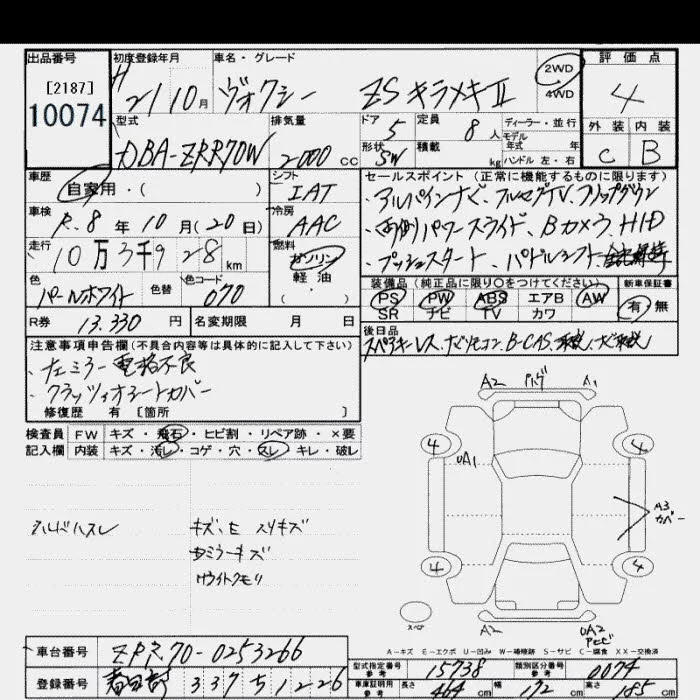 出品番号 初度登録年月 車名・グレード 評価点
[2187] H 21/10月 ヴォクシー ZS キラメキⅡ 2WD 4WD 4
10074 型式 排気量 ドア 5 定員 8人 ディーラー・並行 外装 内装
DBA-ZRR70W 2000 cc 形状 SW 積載 kg モデル年式 年 ハンドル 左・右 C B
車歴 シフト セールスポイント (正常に機能するものに限ります)
自家用・( ) IAT ・アルパインナビ、フルセグTV、フリップダウン
車検 R.8年10月(20日) 冷房 AAC 両側パワースライド、Bカメラ、HID
走行 10万3千9 28km 燃料 ガソリン 軽油 ( ・ ) ・プッシュスタート、パドルシフト、
色 パールホワイト 色替 色コード 070 装備品 (純正品に限り○をつけてください) 新車保証書
PS PW ABS エアB AW 有・無
SR ナビ TV カワ
R券 13.330円 名変期限 月 日 後日品
スペアキーレス、ナビリモコン、B-CAS、
注意事項申告欄(不具合内容等は具体的に記入して下さい)
・左ミラー電格不良
・クラッツィオシートカバー
修復歴 有 [箇所 ]
検査員 FW キズ・飛石・ヒビ割・リペア跡・×要
記入欄 内装 キズ・汚レ・コゲ・穴・スレ・キレ・破レ
A2 A1
4 4
UA1
A3
カバー
4 4
スペア
A2 UA2
ハンドルスレ キズ、E スリキズ
ミラーキズ
ライトクモリ
A-キズ E-エクボ U-凹み W-補修跡 S-サビ C-腐食 XX-交換済
車台番号 ZRR70-0253266
型式指定番号 参考 15738 類別区分番号 参考 0074
登録番号 春日部 337 51226
車庫証明用 参考 長さ 464cm 幅 172cm 高さ 185cm